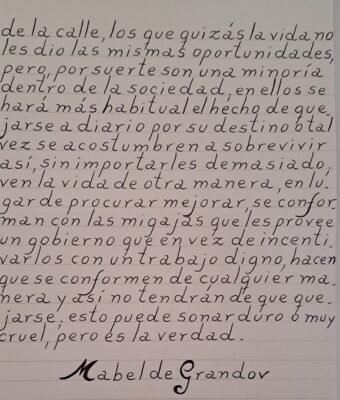 de la calle, los que quizás la vida no
les dio las mismas oportunidades,
pero, por suerte son una minoría
dentro de la sociedad, en ellos se
hará más habitual el hecho de que
jarse a diario por su destino o tal
vez se acostumbren a sobrevivir
así, sin importarles demasiado,
ven la vida de otra manera, en lu-
gar de procurar mejorar, se confor-
man con las migajas que les provee
un gobierno que en vez de incenti-
varlos con un trabajo digno, hacen
que se conformen de cualquier ma-
nera y así no tendrán de que que-
jarse, esto puede sonar duro o muy
cruel, pero es la verdad.
Mabel de Grandov